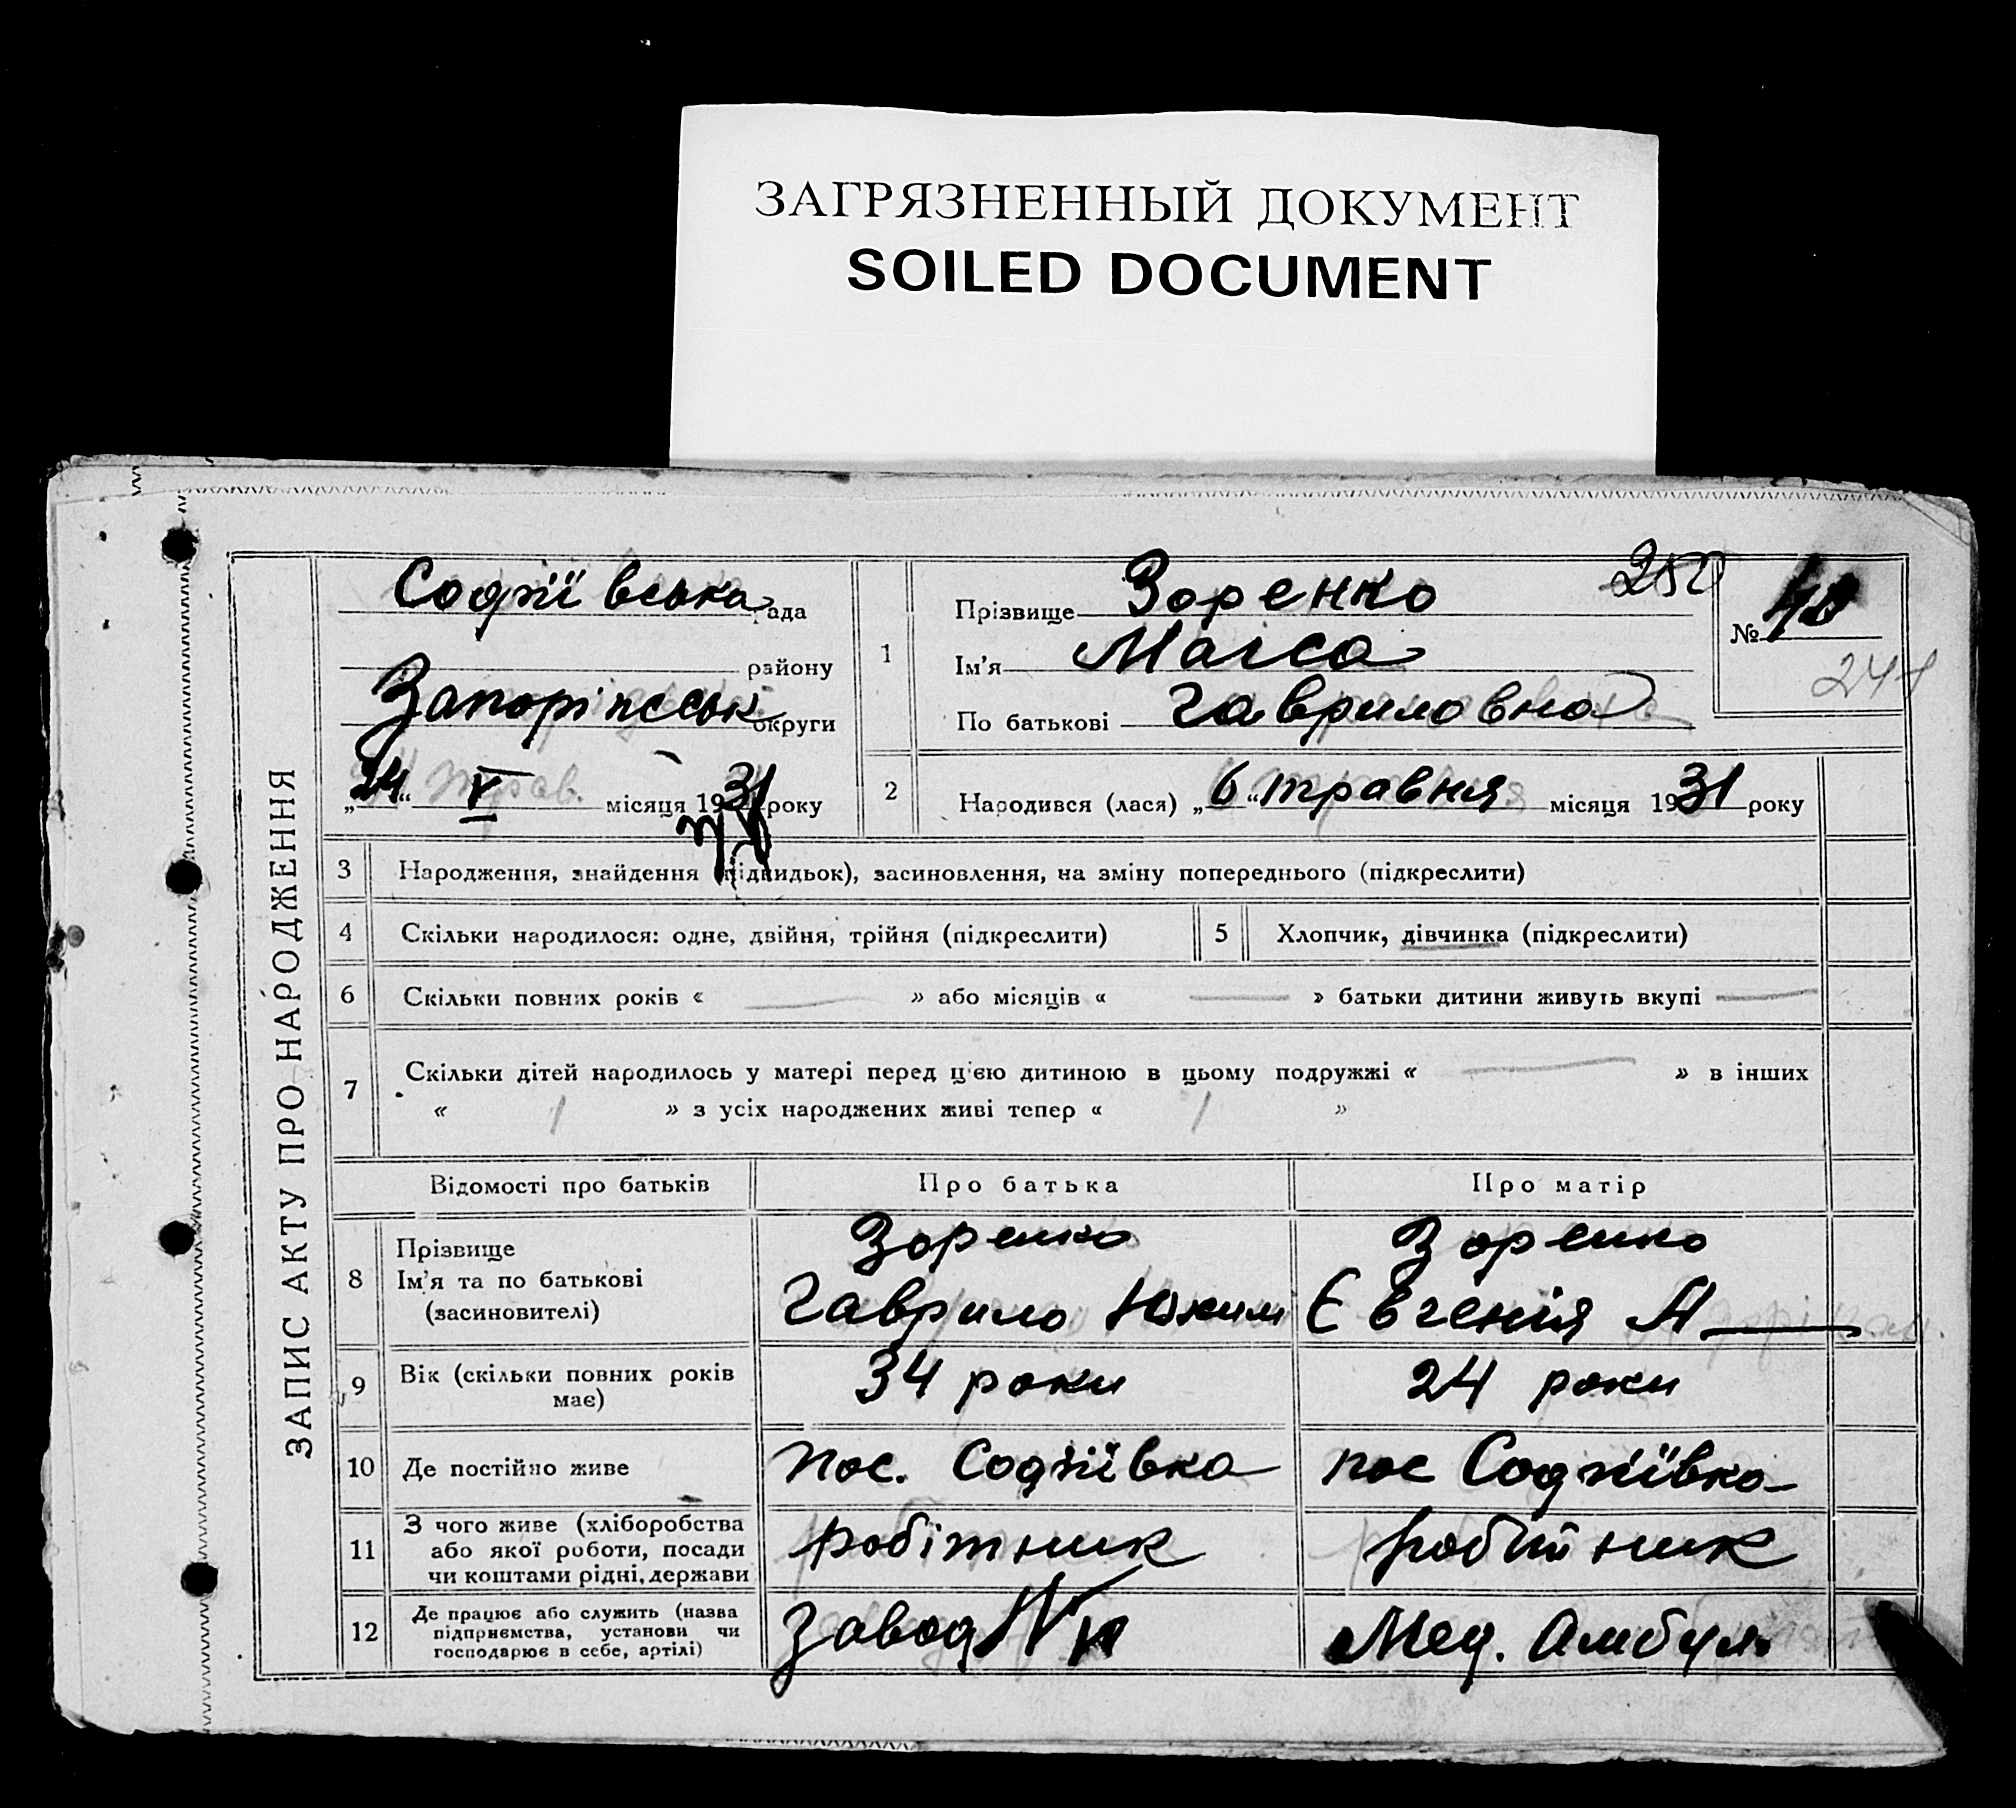 ЗАГРЯЗНЕННЫЙ ДОКУМЕНТ
SOILED DOCUMENT
ЗАПИС АКТУ ПРО НАРОДЖЕННЯ
Софіївська рада
району
округи
„24“ V місяця 1931 року
1
Прізвище Зоренко
Ім'я
По батькові Гавриловна
250
№ 48
241
2
Народився (лася) „6“ травня місяця 1931 року
3 Народження, знайдення (підкидьок), засиновлення, на зміну попереднього (підкреслити)
4 Скільки народилося: одне, двійня, трійня (підкреслити)
5 Хлопчик, дівчинка (підкреслити)
6 Скільки повних років « — » або місяців « — » батьки дитини живуть вкупі —
7 Скільки дітей народилось у матері перед ц'єю дитиною в цьому подружжі « — » в інших
« 1 » з усіх народжених живі тепер « 1 »
Відомості про батьків Про батька Про матір
8 Прізвище Зоренко Зоренко
Ім'я та по батькові Гаврило Євгенія А—
(засиновителі)
9 Вік (скільки повних років має) 34 роки 24 роки
10 Де постійно живе пос. Софіївка пос Софіївка
11 З чого живе (хліборобства або якої роботи, посади чи коштами рідні, держави робітник робітник
12 Де працює або служить (назва підприємства, установи чи господарює в себе, артілі) завод Мед. Амбул.